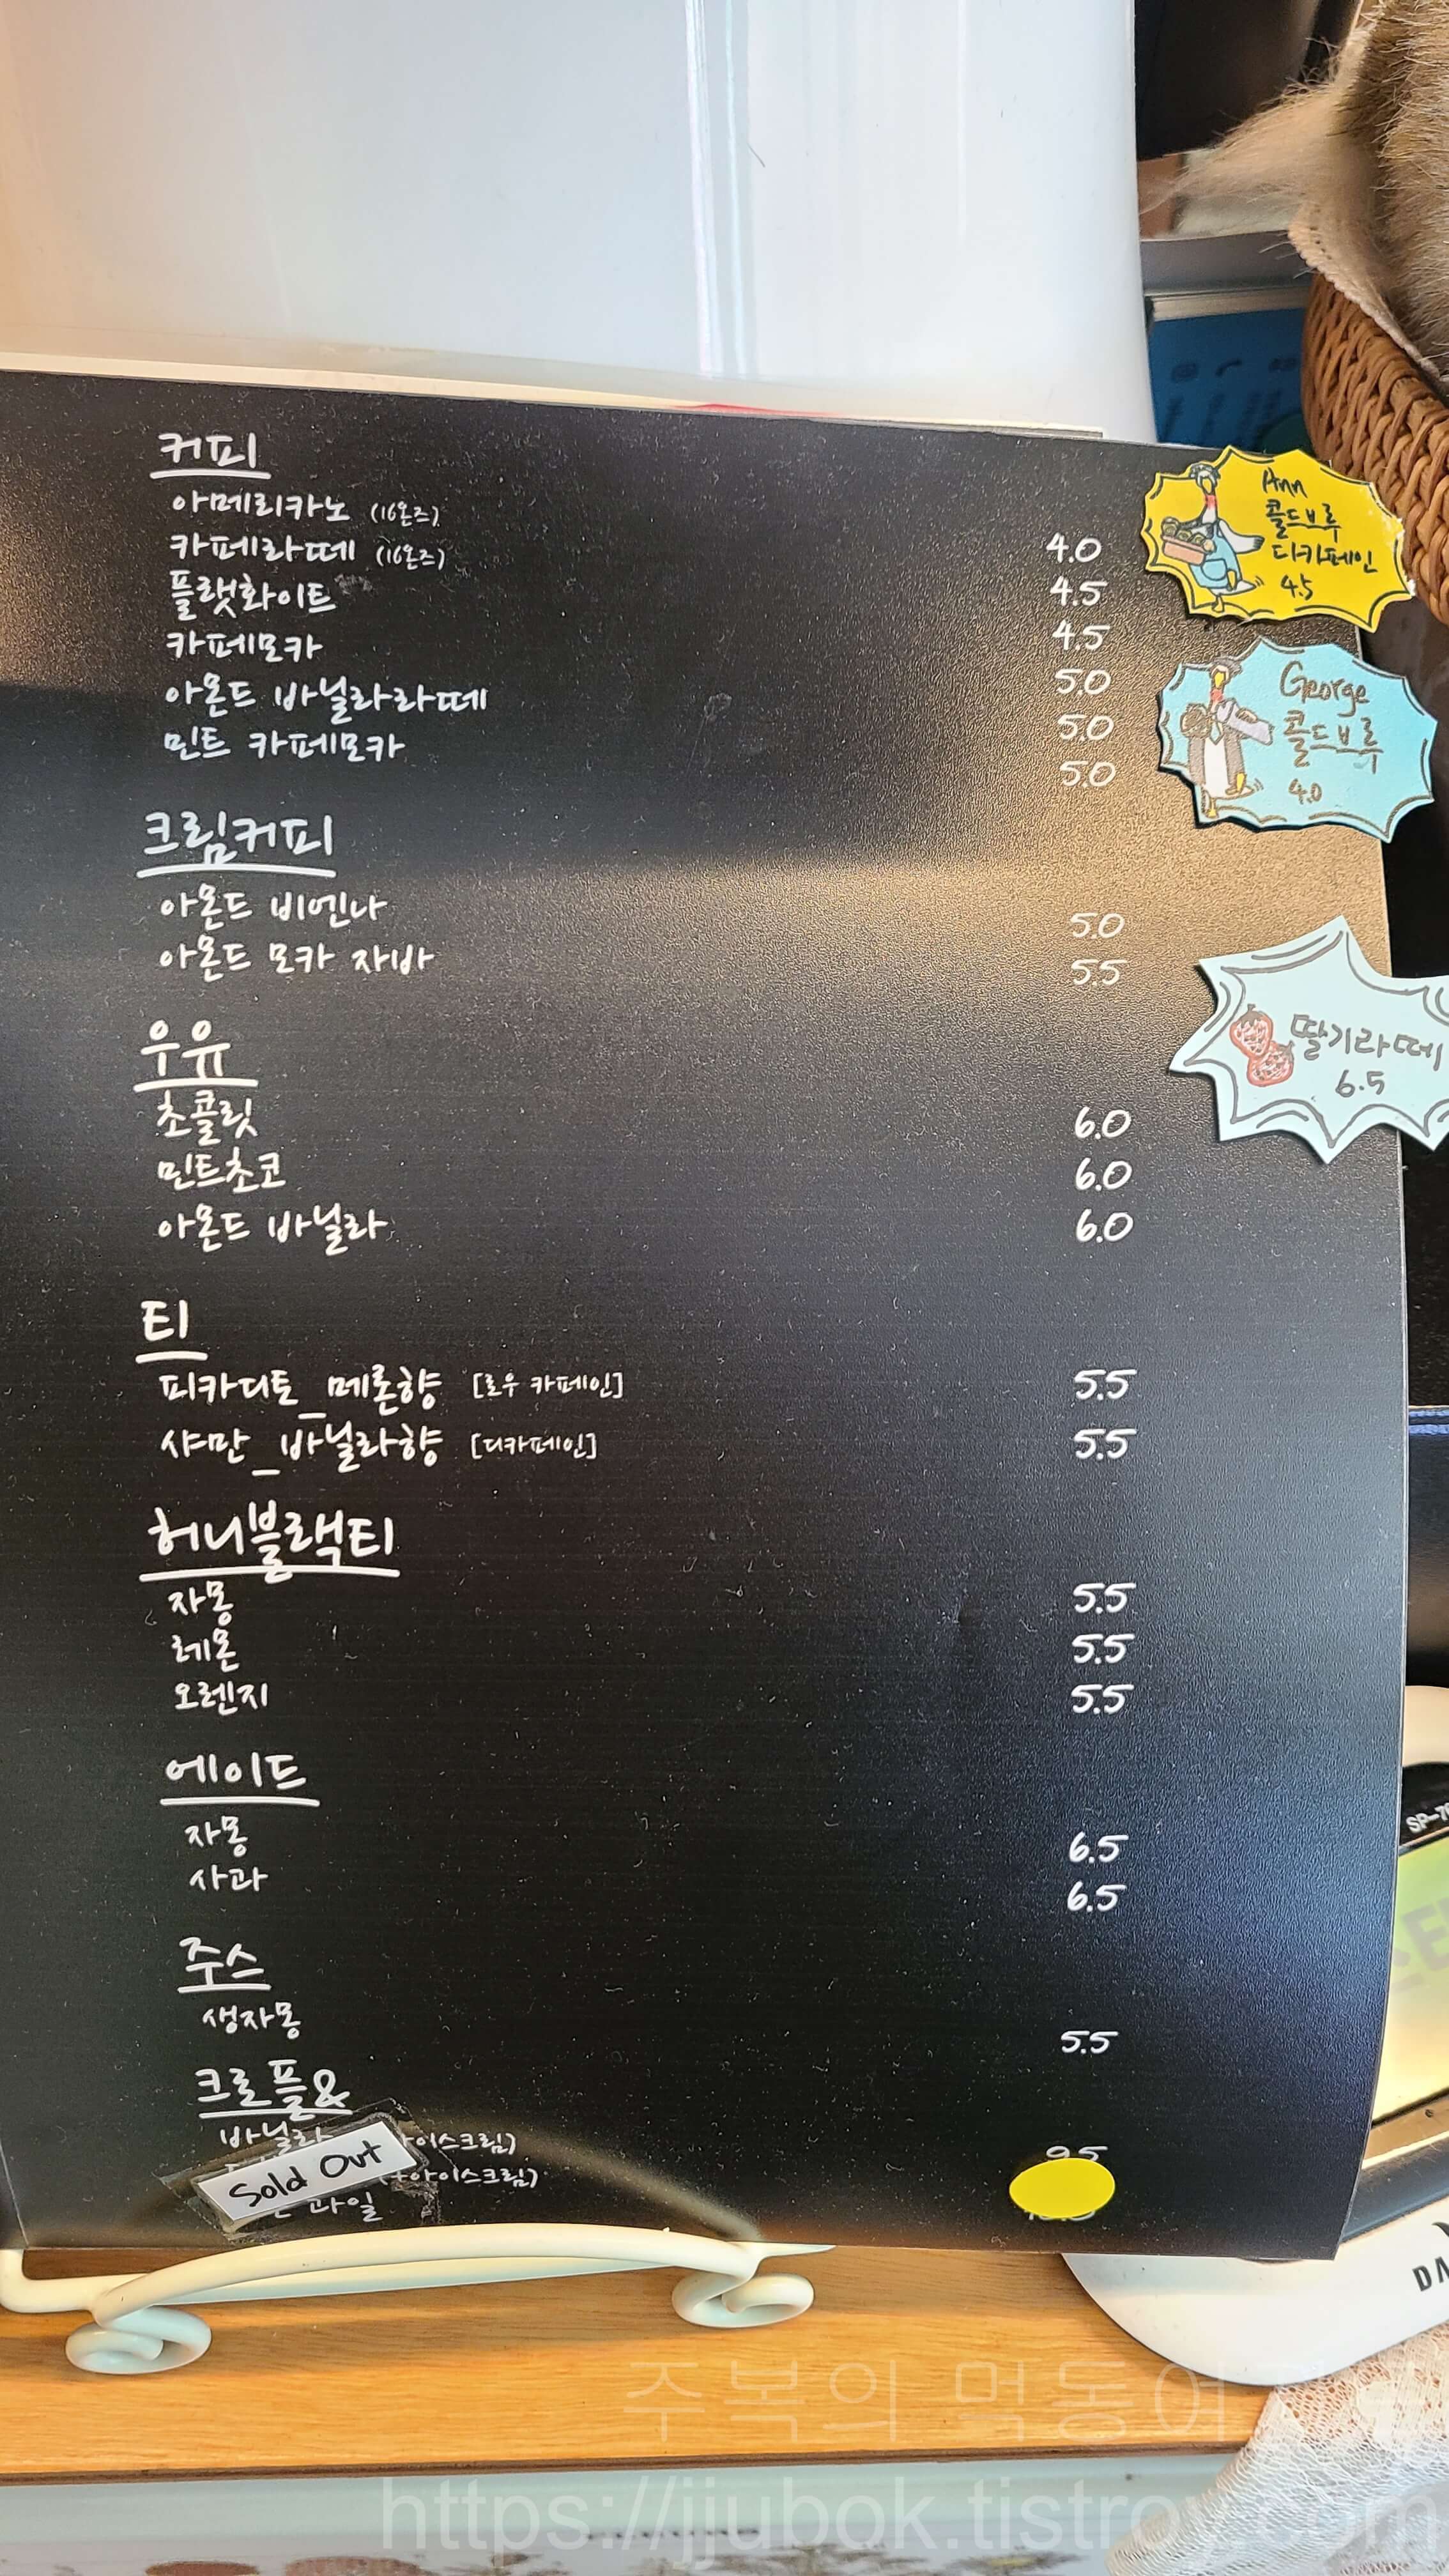 커피
아메리카노 (16온즈) 4.0
카페라떼 (16온즈) 4.5
플랫화이트 4.5
카페모카 5.0
아몬드 바닐라라떼 5.0
민트 카페모카 5.0
크림커피
아몬드 비엔나 5.0
아몬드 모카 자바 5.5
우유
초콜릿 6.0
민트초코 6.0
아몬드 바닐라 6.0
티
피카디토_메론향 [로우 카페인] 5.5
샤만_바닐라향 [디카페인] 5.5
허니블랙티
자몽 5.5
레몬 5.5
오렌지 5.5
에이드
자몽 6.5
사과 6.5
주스
생자몽 5.5
크로플&
바닐라 이스크림) 9.5
Sold Out (+아이스크림)
과일
Ann
콜드브루
디카페인
4.5
George
콜드브루
4.0
딸기라떼
6.5
SP-7
DA
주복의 먹동여
https://jjubok.tistroy.com